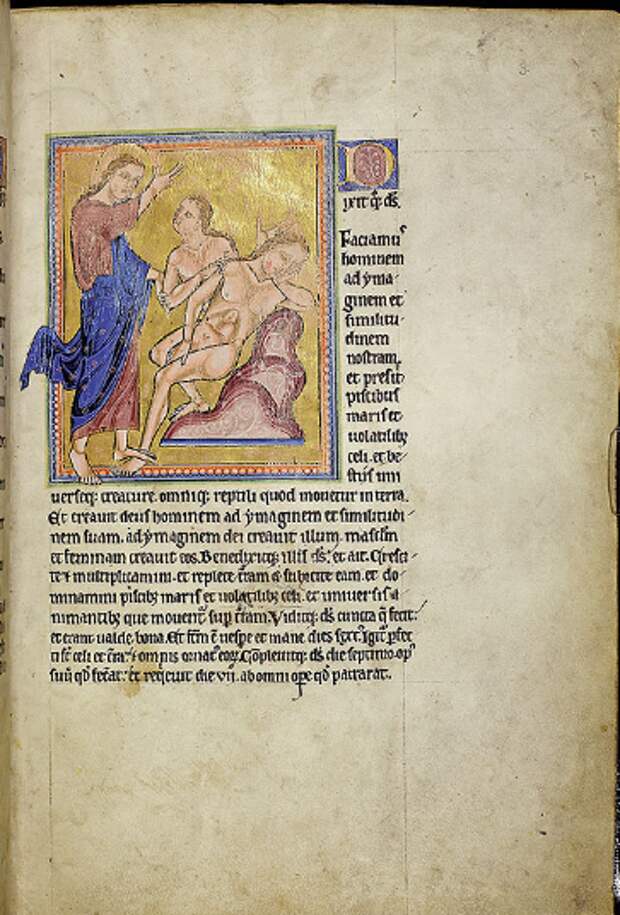 D
ixit qͥ ds̄.
Faciamus
hominem
ad yma-
ginem et
similitu-
dinem
nostram.
et presit
piscibus
maris et
uolatilibꝫ
celi. et be-
stiis uni
uerseqꝫ creature. omniqꝫ reptili quod mouetur in terra.
Et creauit deus hominem ad ymaginem et similitudi-
nem suam. ad ymaginem dei creauit illum. masculum
et feminam creauit eos. Benedixitqꝫ illis ds̄. et ait. Cresci-
te ⁊ multiplicamini. et replete t̄ram ⁊ subicite eam. et do-
minamini piscibꝫ maris et uolatilibꝫ celi. et uniuersis a-
nimantibꝫ que mouent᷑ sup t̄ram. Viditqꝫ ds̄ cuncta q̄ fecit.
et erant ualde bona. Et fc̄m ē uespe et mane dies sext᷒. Igit᷑ ꝑfec
ti st̄ celi et t̄ra. ⁊ omnis ornat᷒ eoꝝ. Compleuitqꝫ ds̄ die septimo op᷒
suū qd̄ fecat. Et requieuit die vii. ab omni ope qd̄ patrarat.